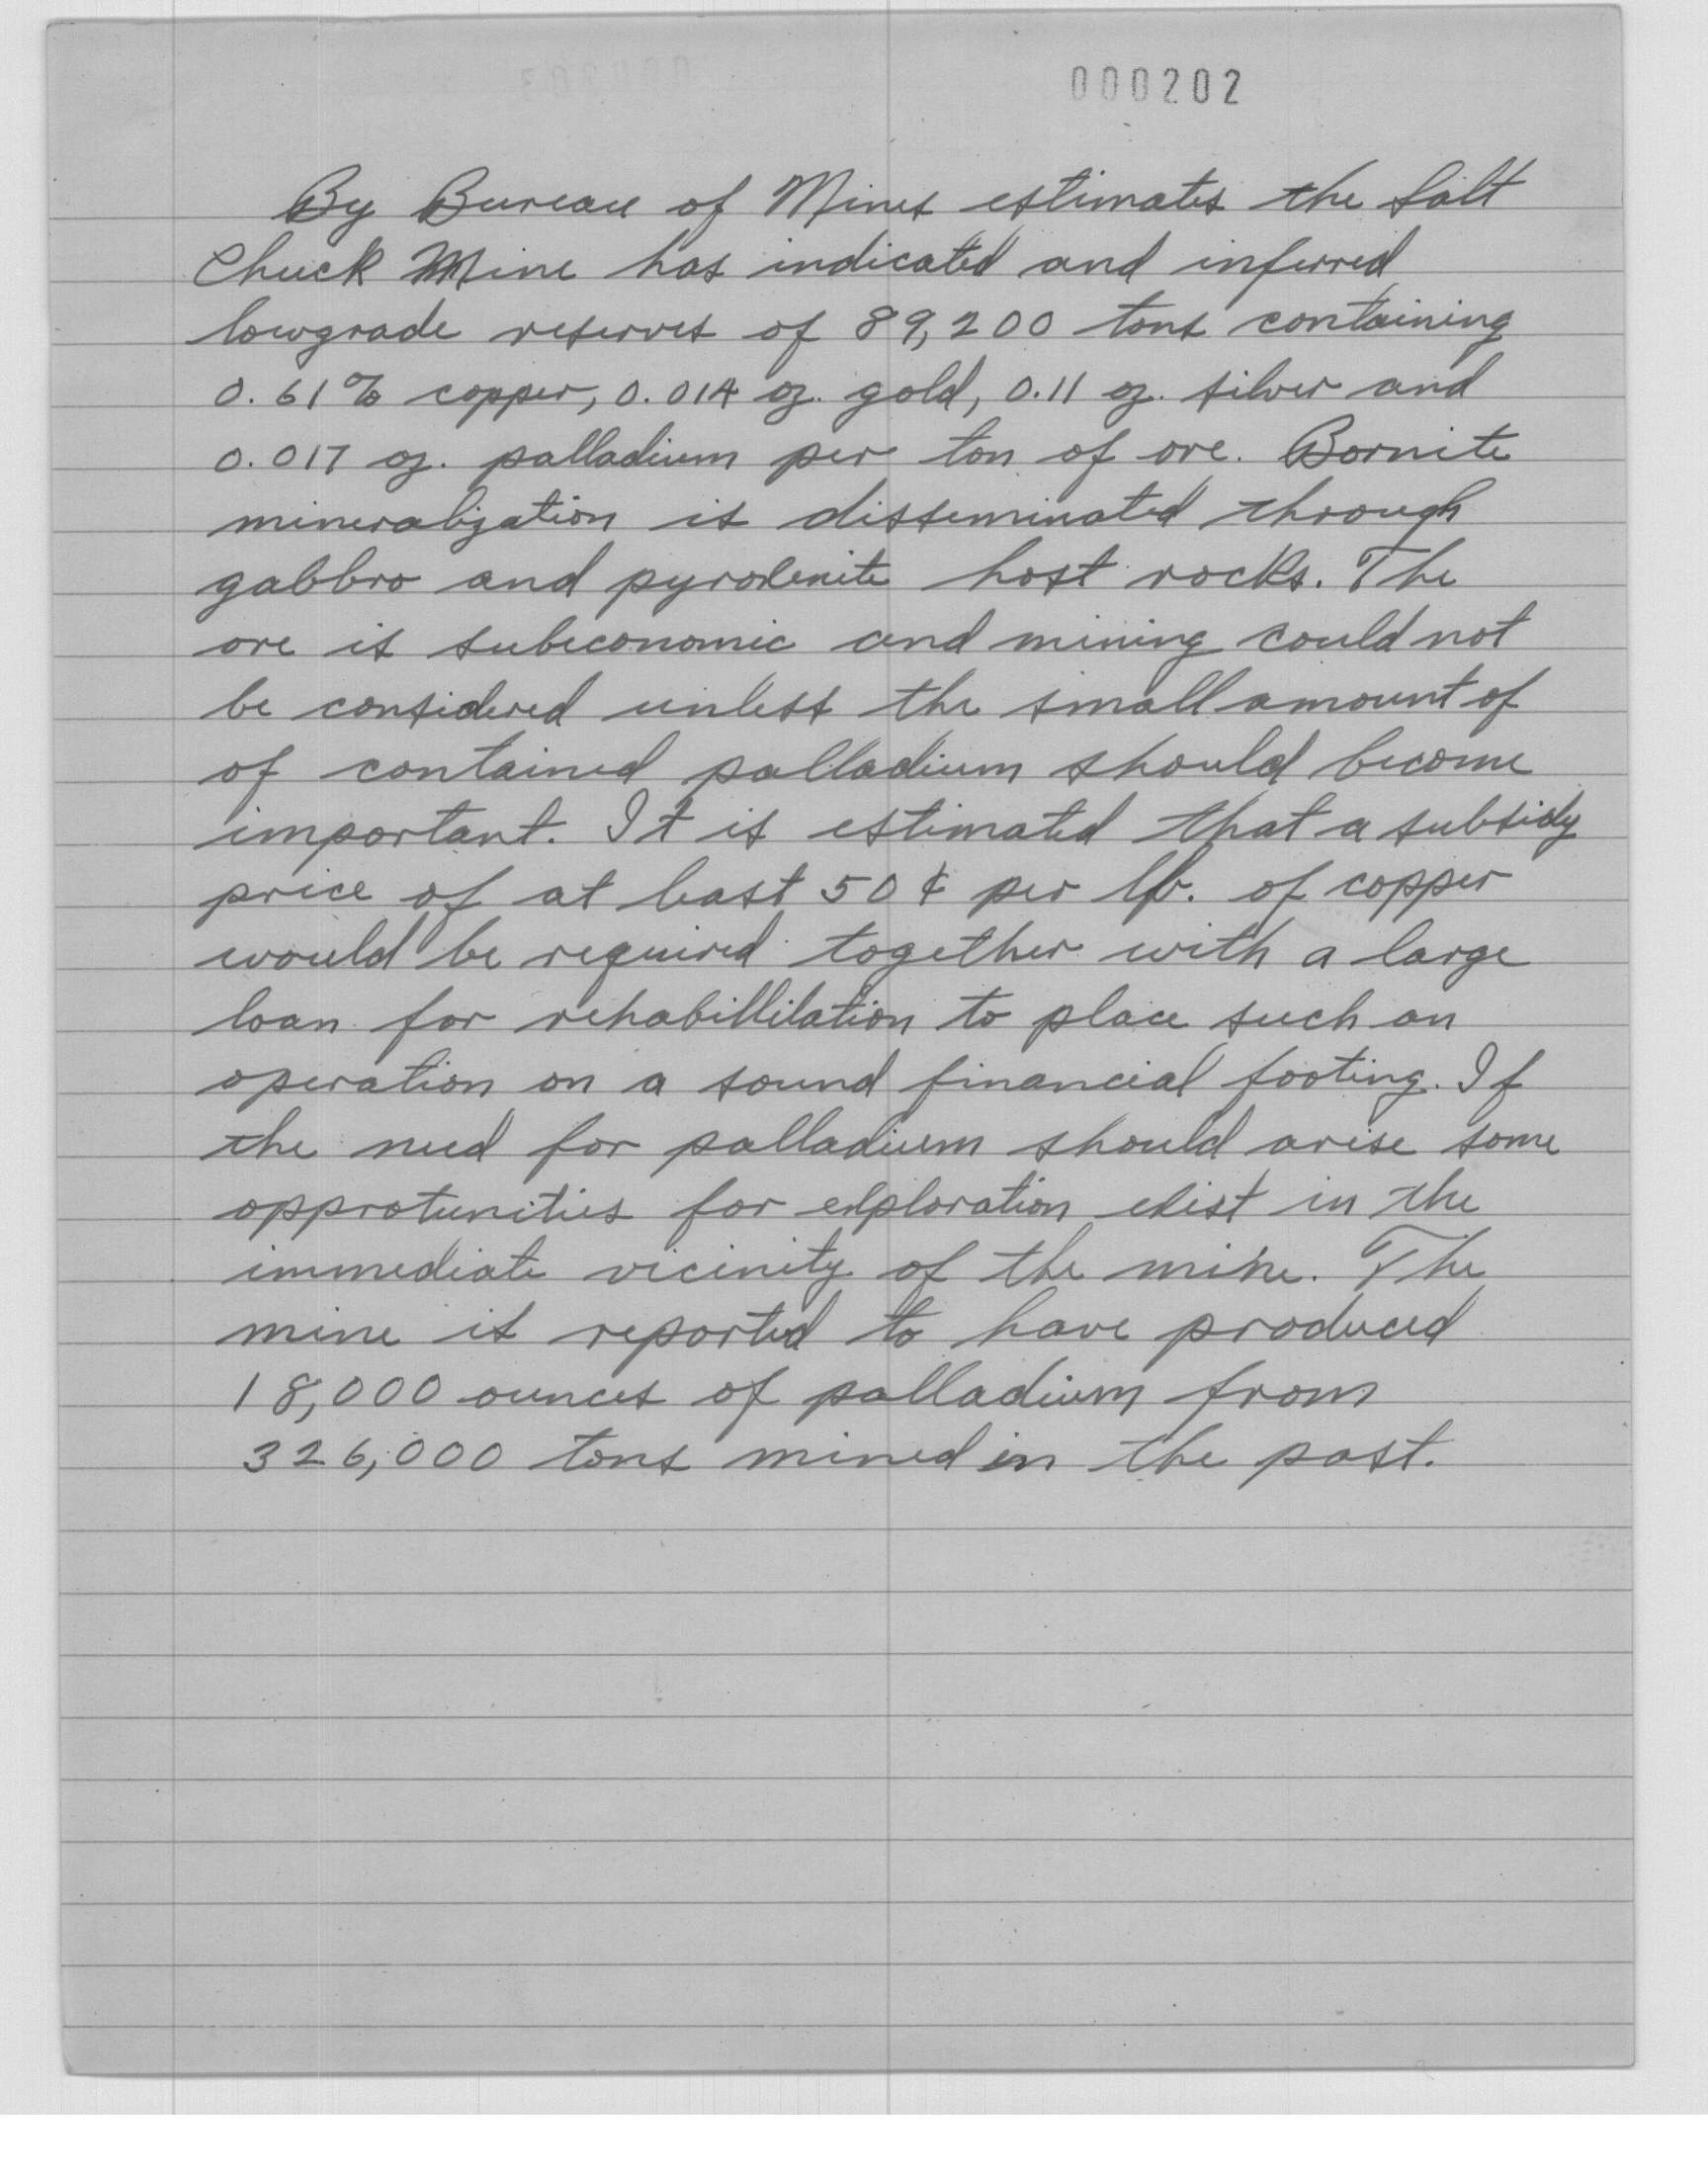 000202
By Bureau of Mines estimates the Salt
Chuck Mine has indicated and inferred
lowgrade reserves of 89,200 tons containing
0.61% copper, 0.014 oz. gold, 0.11 oz. silver and
0.017 oz. palladium per ton of ore. Bornite
mineralization is disseminated through
gabbro and pyroxenite host rocks. The
ore is subeconomic and mining could not
be considered unless the small amount of
of contained palladium should become
important. It is estimated that a subsidy
price of at least 50¢ per lb. of copper
would be required together with a large
loan for rehabillilation to place such an
operation on a sound financial footing. If
the need for palladium should arise some
opprotunities for exploration exist in the
immediate vicinity of the mine. The
mine is reported to have produced
18,000 ounces of palladium from
326,000 tons mined in the past.